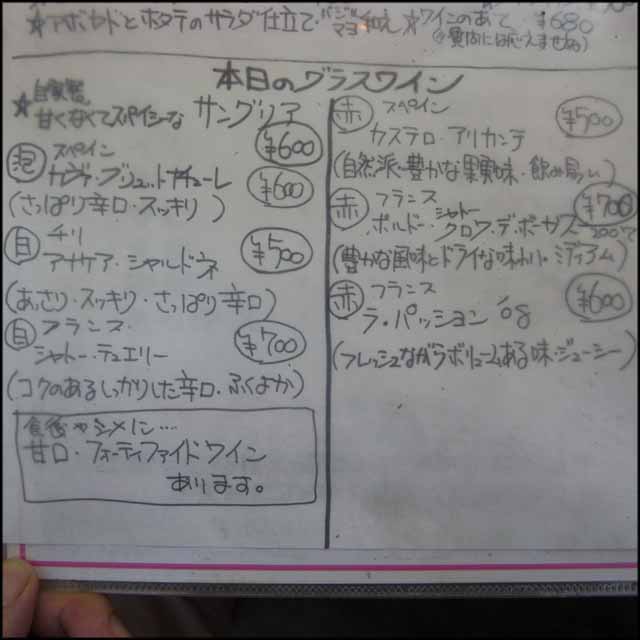 ★アボカドとホタテのサラダ仕立て・バジルマヨ和え ★ワインのあて ¥680
本日のグラスワイン
★自家製
甘くなくてスパイシーな サングリア ¥600
泡 スペイン
カヴァ・ブリュットナチューレ ¥600
(さっぱり辛口・スッキリ)
白 チリ
アナケナ・シャルドネ ¥500
(あっさり・スッキリ・さっぱり辛口)
白 フランス
シャトー・テュエリー ¥700
(コクのあるしっかりした辛口・ふくよか)
食後やシメに…
甘口・フォーティファイドワイン
あります。
赤 スペイン ¥500
カステロ アリカンテ
(自然派・豊かな果実味・飲み易い)
赤 フランス ¥700
ボルドー・シャトー・クロワ・デ・ボーガス
(豊かな風味とドライな味わい・ミディアム)
赤 フランス ¥600
ラ・パッション '08
(フレッシュながらボリュームある味・ジューシー)